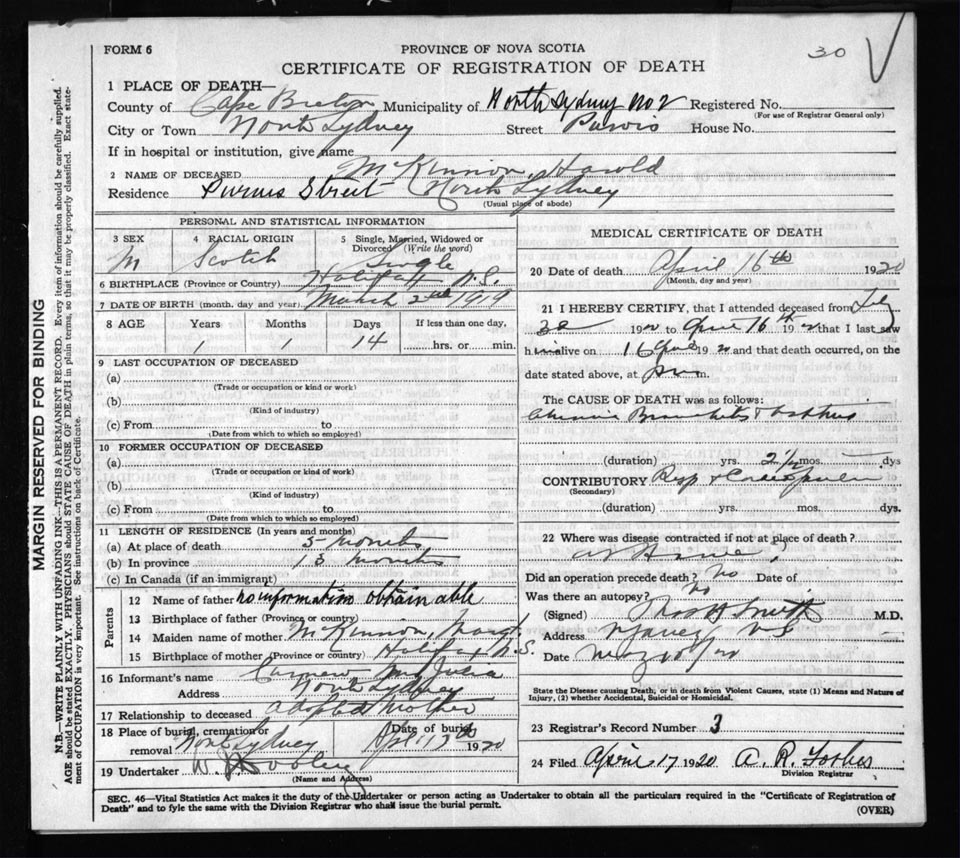 FORM 6
PROVINCE OF NOVA SCOTIA
30
CERTIFICATE OF REGISTRATION OF DEATH
1 PLACE OF DEATH—
County of Cape Breton Municipality of North Sydney No 2 Registered No.
(For use of Registrar General only)
City or Town North Sydney Street Purvis House No.
If in hospital or institution, give name
2 NAME OF DECEASED McKinnon, Harold
Residence Purvis Street North Sydney
(Usual place of abode)
PERSONAL AND STATISTICAL INFORMATION
3 SEX M
4 RACIAL ORIGIN Scotch
5 Single, Married, Widowed or Divorced (Write the word) Single
6 BIRTHPLACE (Province or Country) Halifax N.S.
7 DATE OF BIRTH (month, day and year) March 2nd 1919
8 AGE Years Months Days If less than one day,
1 1 14 hrs. or min.
9 LAST OCCUPATION OF DECEASED
(a)
(Trade or occupation or kind of work)
(b)
(Kind of industry)
(c) From to
(Date from which to which so employed)
10 FORMER OCCUPATION OF DECEASED
(a)
(Trade or occupation or kind of work)
(b)
(Kind of industry)
(c) From to
(Date from which to which so employed)
11 LENGTH OF RESIDENCE (In years and months)
(a) At place of death 5 months
(b) In province 13 months
(c) In Canada (if an immigrant)
Parents
12 Name of father no information obtainable
13 Birthplace of father (Province or country)
14 Maiden name of mother McKinnon,
15 Birthplace of mother (Province or country) Halifax N.S.
16 Informant's name Julia
Address North Sydney
17 Relationship to deceased adopted mother
18 Place of burial, cremation or removal North Sydney Date of burial 1920
19 Undertaker
(Name and Address)
MEDICAL CERTIFICATE OF DEATH
20 Date of death April 16th 1920
(Month, day and year)
21 I HEREBY CERTIFY, that I attended deceased from
1920 to April 16th 1920 that I last saw
him alive on 16 April 1920 and that death occurred, on the
date stated above, at m.
The CAUSE OF DEATH was as follows:
Bronchitis
(duration) yrs. 2 1/2 mos. dys
CONTRIBUTORY Resp
(Secondary)
(duration) yrs. mos. dys.
22 Where was disease contracted if not at place of death?
at Home
Did an operation precede death? No Date of
Was there an autopsy? No
(Signed) M.D.
Address N S
Date
State the Disease causing Death, or in death from Violent Causes, state (1) Means and Nature of
Injury, (2) whether Accidental, Suicidal or Homicidal.
23 Registrar's Record Number 3
24 Filed April 17 1920 A. R. Forbes
Division Registrar
SEC. 46—Vital Statistics Act makes it the duty of the Undertaker or person acting as Undertaker to obtain all the particulars required in the "Certificate of Registration of
Death" and to fyle the same with the Division Registrar who shall issue the burial permit.
(OVER)
MARGIN RESERVED FOR BINDING
N.B.—WRITE PLAINLY WITH UNFADING INK—THIS IS A PERMANENT RECORD. Every item of information should be carefully supplied.
AGE should be stated EXACTLY. PHYSICIANS should STATE CAUSE OF DEATH in plain terms, so that it may be properly classified. Exact state-
ment of OCCUPATION is very important. See instructions on back of Certificate.